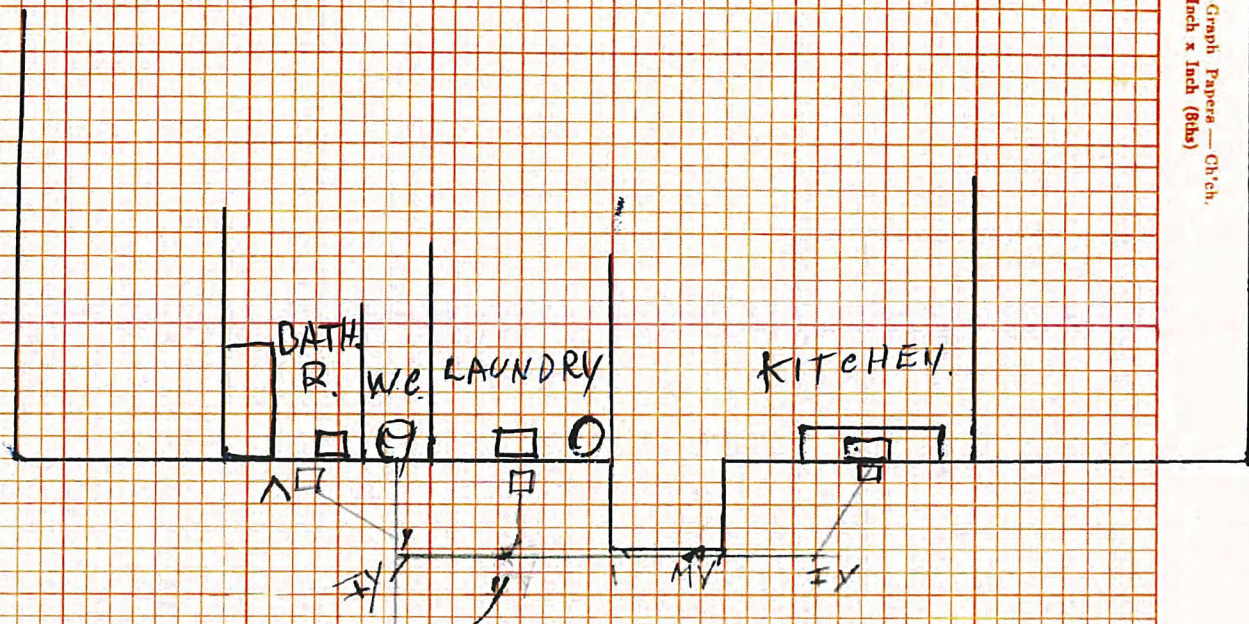 Graph Papers — Ch'ch.
Inch x Inch (8ths)
BATH.
R.
W.C.
LAUNDRY
KITCHEN.
IY
Y
MV
IY